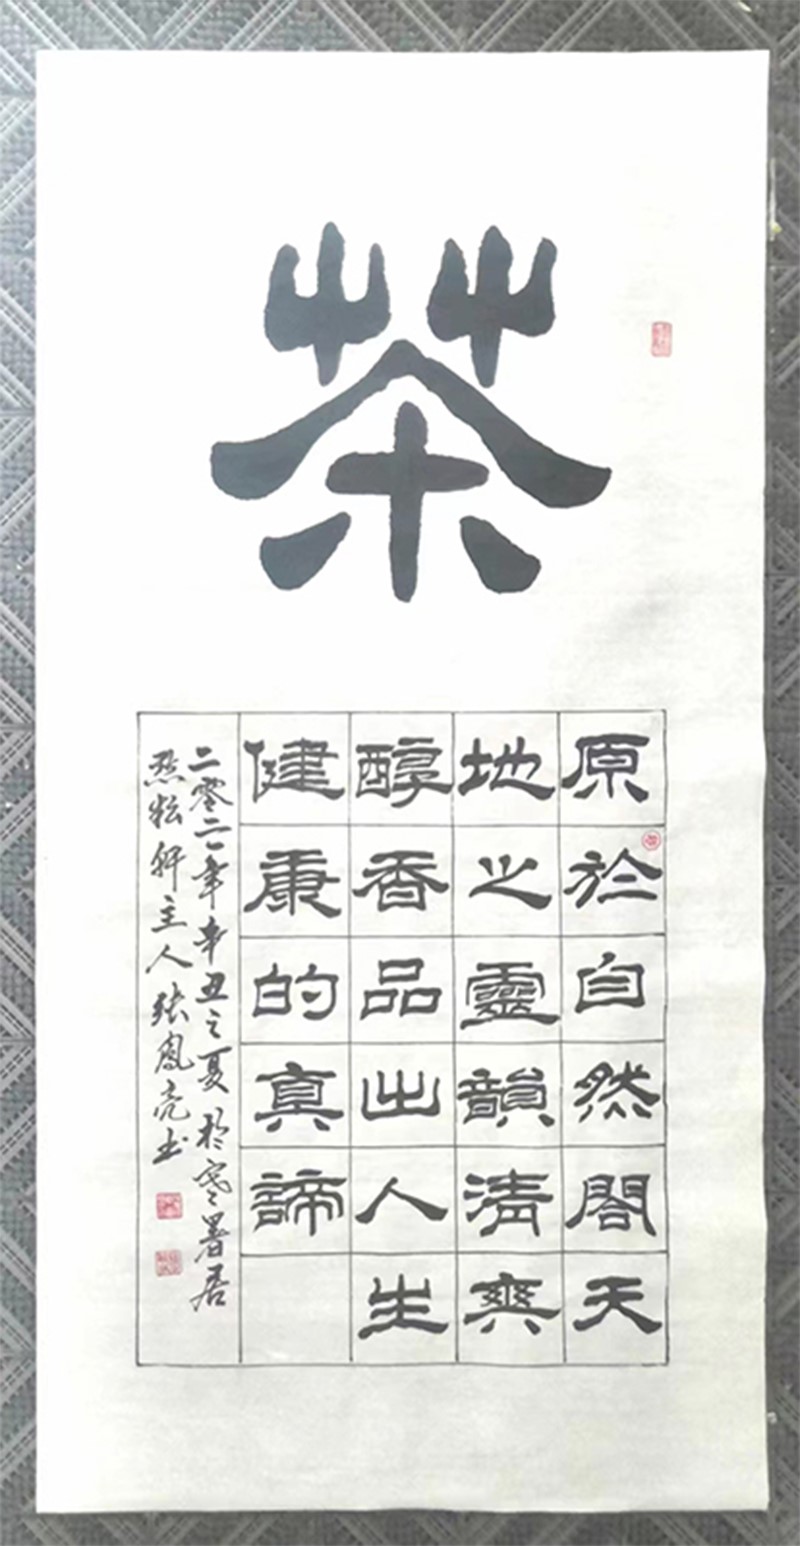 茶
原於自然閤天
地之靈韻清爽
醇香品出人生
健康的真諦
二零二一年辛丑之夏於寒暑居
烝耘軒主人张鳳亮书